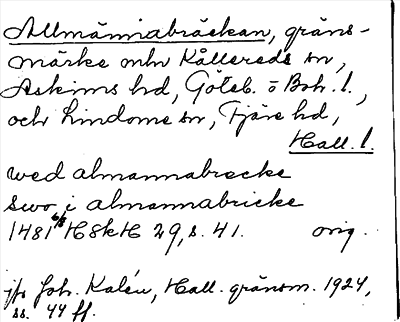 Allmännabräckan, gräns-
märke mln Kållereds sn,
Askims hd, Göteb. o Boh. l.,
och Lindome sn, Fjäre hd,
Hall. l.
wed almannabrecke
swo i almannabricke
1481 6/8 HSkH 29, s. 41. orig.
jfr Joh. Kalén, Hall. gränsm. 1924,
ss. 44 ff.